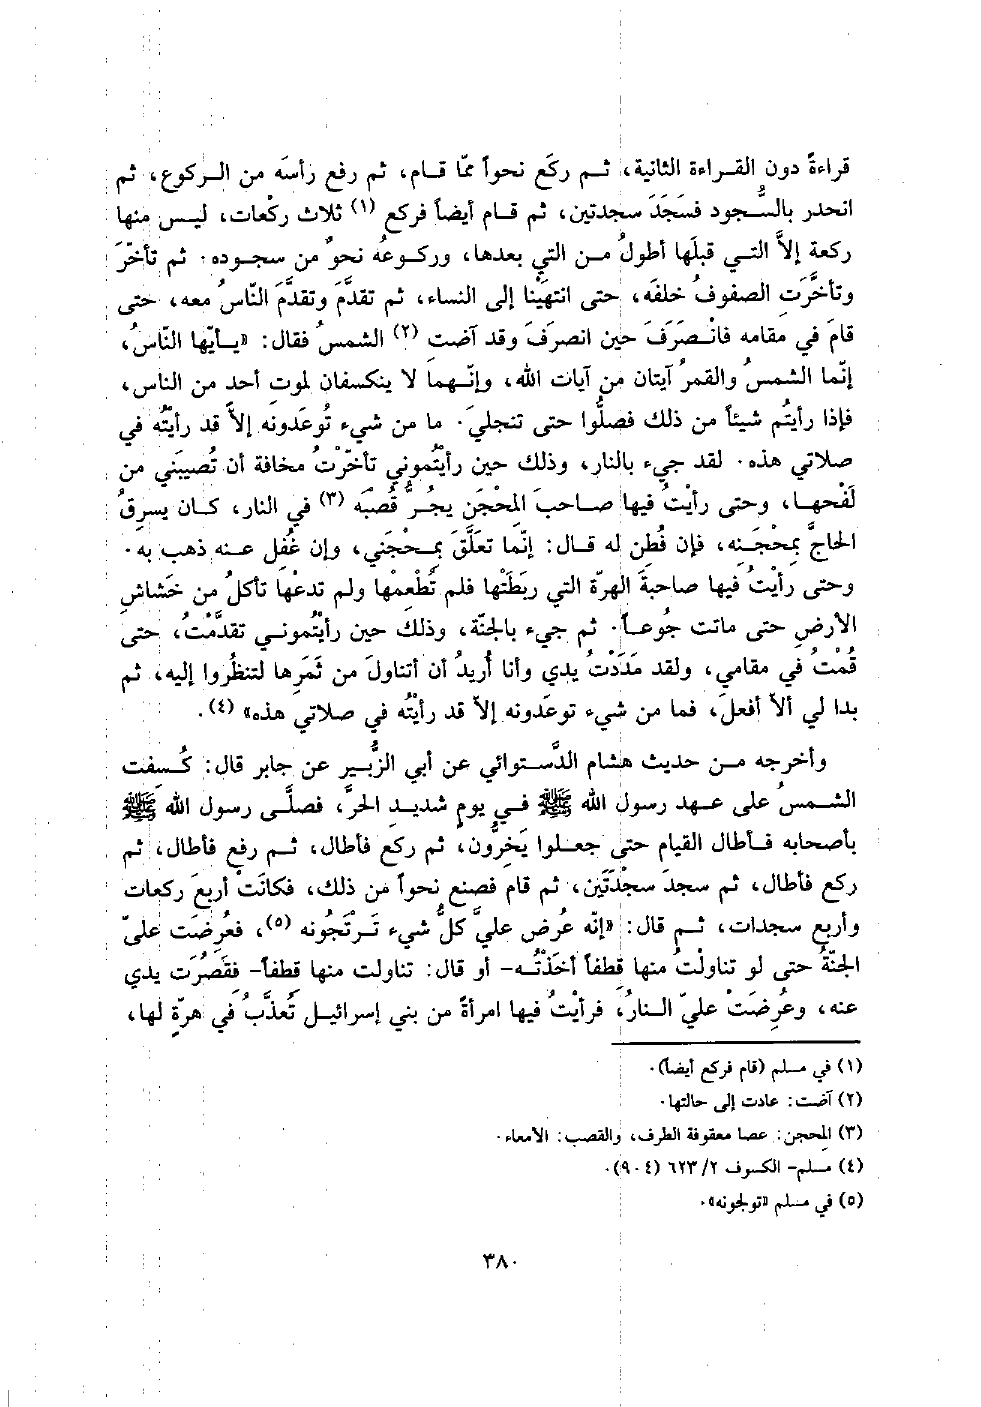 قراءةً دون القراءة الثانية، ثم ركَع نحواً ممّا قام، ثم رفع رأسَه من الركوع، ثم
انحدر بالسُّجود فسَجَدَ سجدتين، ثم قام أيضاً فركع (١) ثلاث ركْعات، ليس منها
ركعة إلاَّ التي قبلَها أطولُ من التي بعدها، وركوعُه نحوٌ من سجوده. ثم تأخّرَ
وتأخَّرَت الصفوفُ خلفَه، حتى انتهَيْنا إلى النساء، ثم تقدَّمَ وتقدَّمَ النّاسُ معه، حتى
قامَ في مقامه فانْصَرَفَ حين انصرَفَ وقد آضت (٢) الشمسُ فقال: «يأيّها النّاسُ،
إنّما الشمسُ والقمرُ آيتان من آيات الله، وإنّهما لا ينكسفان لموت أحد من الناس،
فإذا رأيتُم شيئاً من ذلك فصلُّوا حتى تنجليَ. ما من شيء تُوعَدونه إلاّ قد رأيتُه في
صلاتي هذه. لقد جيء بالنار، وذلك حين رأيتُموني تأخّرْتُ مخافة أن تُصيبَني من
لَفْحها، وحتى رأيْتُ فيها صاحبَ المِحْجَن يجُرُّ قُصْبَه (٣) في النار، كان يسرِقُ
الحاجَّ بمِحْجَنِه، فإن فُطِن له قال: إنّما تعَلَّقَ بمحْجَني، وإن غُفِل عنه ذهب به.
وحتى رأيْتُ فيها صاحبةَ الهرّة التي ربَطَتْها فلم تُطْعمْها ولم تدعْها تأكلُ من خَشاشِ
الأرضِ حتى ماتت جُوعاً. ثم جيء بالجنّة، وذلك حين رأيْتُموني تقدَّمْتُ، حتى
قُمْتُ في مقامي، ولقد مَدَدْتُ يدي وأنا أُريدُ أن أتناولَ من ثَمَرِها لتنظُروا إليه، ثم
بدا لي ألاّ أفعلَ، فما من شيء توعَدونه إلاّ قد رأيْتُه في صلاتي هذه» (٤).
وأخرجه من حديث هشام الدَّستوائي عن أبي الزُّبير عن جابر قال: كُسِفت
الشمسُ على عهد رسول الله ﷺ في يومٍ شديد الحرّ، فصلَّى رسول الله ﷺ
بأصحابه فأطال القيام حتى جعلوا يَخِرُّون، ثم ركع فأطال، ثم رفع فأطال، ثم
ركع فأطال، ثم سجدَ سجْدَتَين، ثم قام فصنع نحواً من ذلك، فكانَتْ أربعَ ركعات
وأربع سجدات، ثم قال: «إنّه عُرض عليَّ كلُّ شيء تَرْتَجُونه (٥)، فعُرِضَت عليّ
الجنّةُ حتى لو تناولْتُ منها قِطفاً أخَذْتُه- أو قال: تناولت منها قطفاً- فقَصُرَت يدي
عنه، وعُرِضَتْ عليّ النارُ، فرأيْتُ فيها امرأةً من بني إسرائيل تُعذَّبُ في هرّةٍ لها،
(١) في مسلم (قام فركع أيضاً).
(٢) آضت: عادت إلى حالتها.
(٣) المِحجن: عصا معقوفة الطرف، والقصب: الأمعاء.
(٤) مسلم- الكسوف ٦٢٣/٢ (٩٠٤).
(٥) في مسلم «تولجونه».
٣٨٠